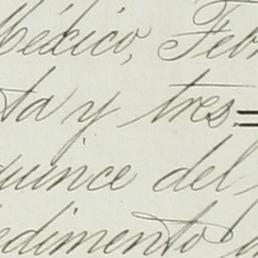 México, Feb
ta y tres =
quince del
edimento